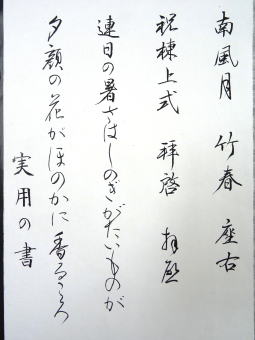 南風月 竹春 座右
祝棟上式 拝啓 拝啓
連日の暑さはしのぎがたいものが
夕顔の花がほのかに香るころ
実用の書